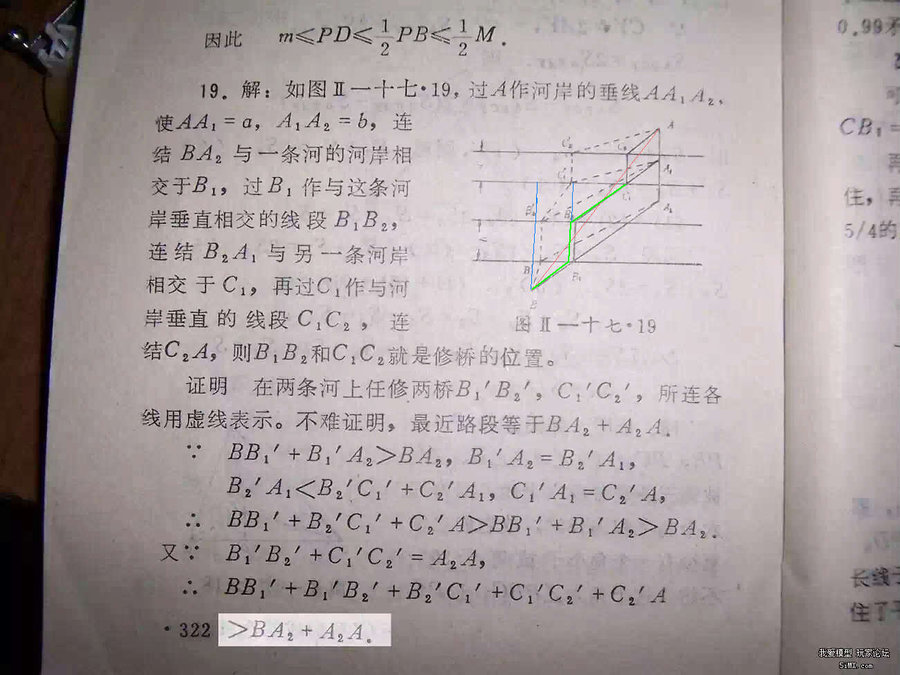 因此 m≤PD≤1/2 PB≤1/2 M.
19. 解: 如图Ⅱ—十七·19, 过A作河岸的垂线AA₁A₂,
使AA₁=a, A₁A₂=b, 连
结 BA₂ 与一条河的河岸相
交于B₁, 过B₁ 作与这条河
岸垂直相交的线段 B₁B₂,
连结 B₂A₁ 与另一条河岸
相交于C₁, 再过C₁作与河
岸垂直的线段 C₁C₂, 连
结C₂A, 则B₁B₂和C₁C₂就是修桥的位置。
图Ⅱ—十七·19
证明 在两条河上任修两桥B₁′B₂′, C₁′C₂′, 所连各
线用虚线表示。不难证明, 最近路段等于BA₂+A₂A.
∵ BB₁′+B₁′A₂>BA₂, B₁′A₂=B₂′A₁,
B₂′A₁<B₂′C₁′+C₂′A₁, C₁′A₁=C₂′A,
∴ BB₁′+B₂′C₁′+C₂′A>BB₁′+B₁′A₂>BA₂.
又∵ B₁′B₂′+C₁′C₂′=A₂A,
∴ BB₁′+B₁′B₂′+B₂′C₁′+C₁′C₂′+C₂′A
·322 >BA₂+A₂A。
0.99
CB₁=
住, 再
5/4的
长线
住了
我爱模型 玩家论坛
5iMX.com